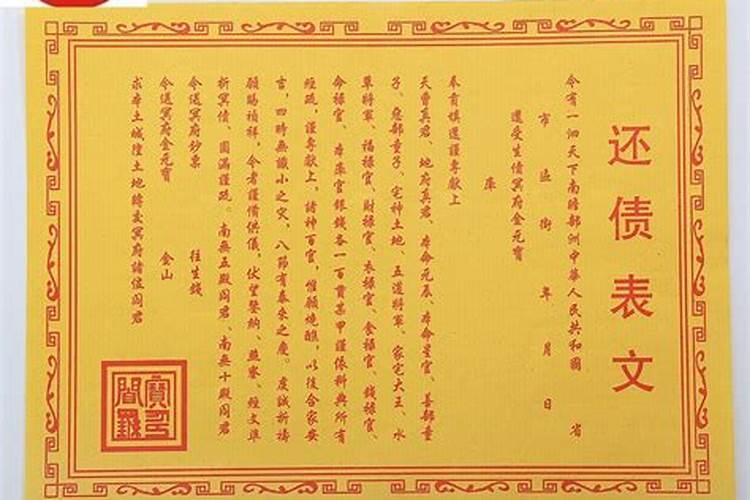 还债表文
今有一泗天下南瞻部洲中華人民共和國 省
市 區 街 年 月 日
還受生債冥府金元寶
庫
奉有填還謹專獻上
天曹真君、地府真君、本命元辰、本命星官、善部童
子、惡部童子、宅神土地、五道將軍、家宅大王、水
草將軍、福祿官、財祿官、衣祿官、食祿官、錢祿官、
命祿官、本庫官銀錢各一百貫某甲謹依科典所有
經疏，謹專獻上，諸神百官，惟願燒醮，以後合家安
吉，四時無讖小之灾，八節有泰來之慶。虔誠祈禱
願賜禎祥，今者謹備供儀，伏望鑒納、燕寮、經文準
折冥債、圓滿謹疏。南無五殿阎君、南無十殿阎君
今送冥府鈔票 往生錢
今送冥府金元寶 金山
求本土城隍土地轉交冥府諸位阎君